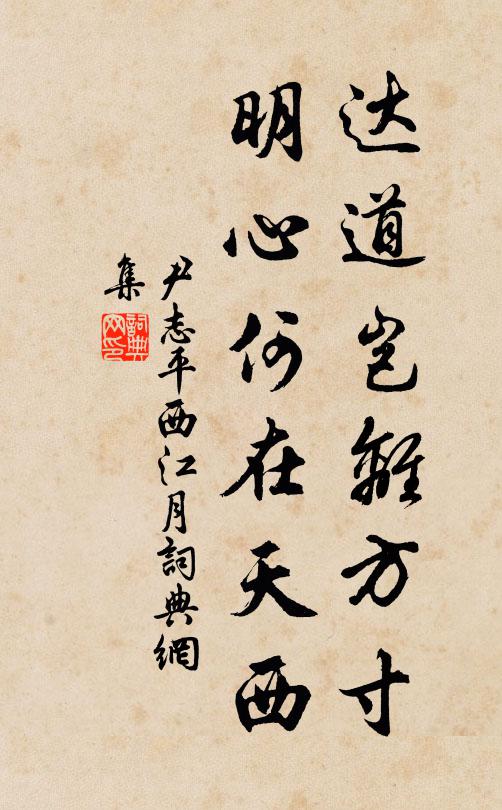 达道岂離方寸
明心何在天西
尹志平西江月詞典網
集
詞典
网印